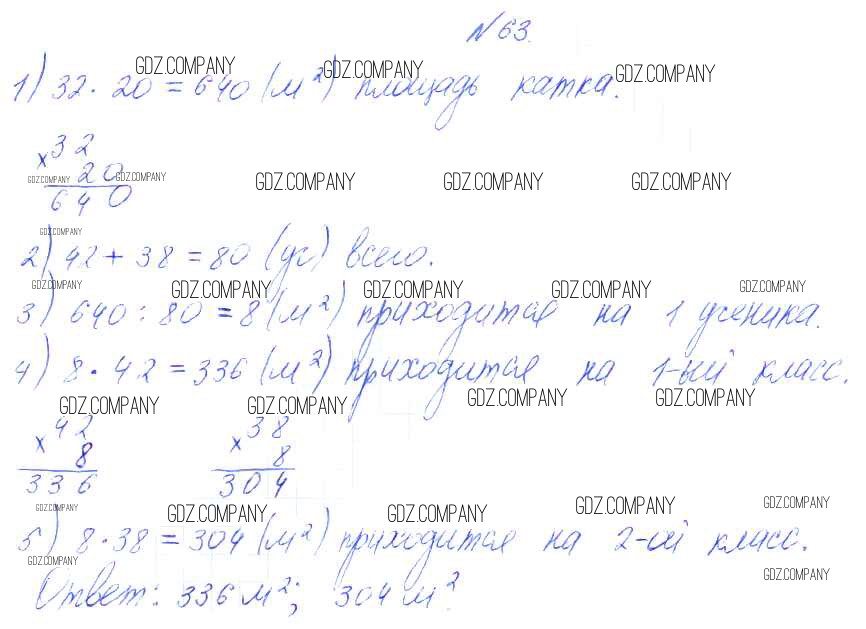 №63.
GDZ.COMPANY GDZ.COMPANY GDZ.COMPANY
1) 32 · 20 = 640 (м²) площадь катка.
× 32
20
GDZ.COMPANY GDZ.COMPANY GDZ.COMPANY GDZ.COMPANY GDZ.COMPANY
640
GDZ.COMPANY
2) 42 + 38 = 80 (уч) всего.
GDZ.COMPANY GDZ.COMPANY GDZ.COMPANY GDZ.COMPANY GDZ.COMPANY
3) 640 : 80 = 8 (м²) приходится на 1 ученика.
4) 8 · 42 = 336 (м²) приходится на 1-ый класс.
GDZ.COMPANY GDZ.COMPANY GDZ.COMPANY GDZ.COMPANY
× 42 × 38
8 8
336 304
GDZ.COMPANY GDZ.COMPANY GDZ.COMPANY GDZ.COMPANY GDZ.COMPANY
5) 8 · 38 = 304 (м²) приходится на 2-ой класс.
GDZ.COMPANY GDZ.COMPANY
Ответ: 336 м²; 304 м².